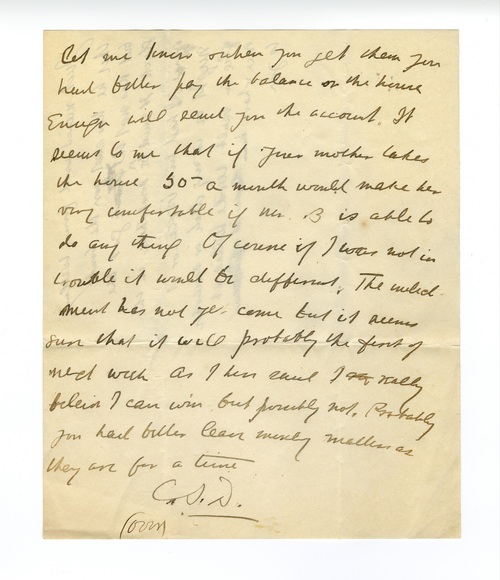 Let me know when you get them you
had better pay the balance on the house
will send you the account. It
seems to me that if your mother takes
the house 50 - a month would make her
very comfortable if Mr. B is able to
do any thing Of course if I was not in
trouble it would be different. The indict-
ment has not yet come but it seems
sure that it will probably the first of
next week - As I have said I really
believe I can win but possibly not. Probably
you had better leave money matters as
they are for a time
C. S. D.
(over)